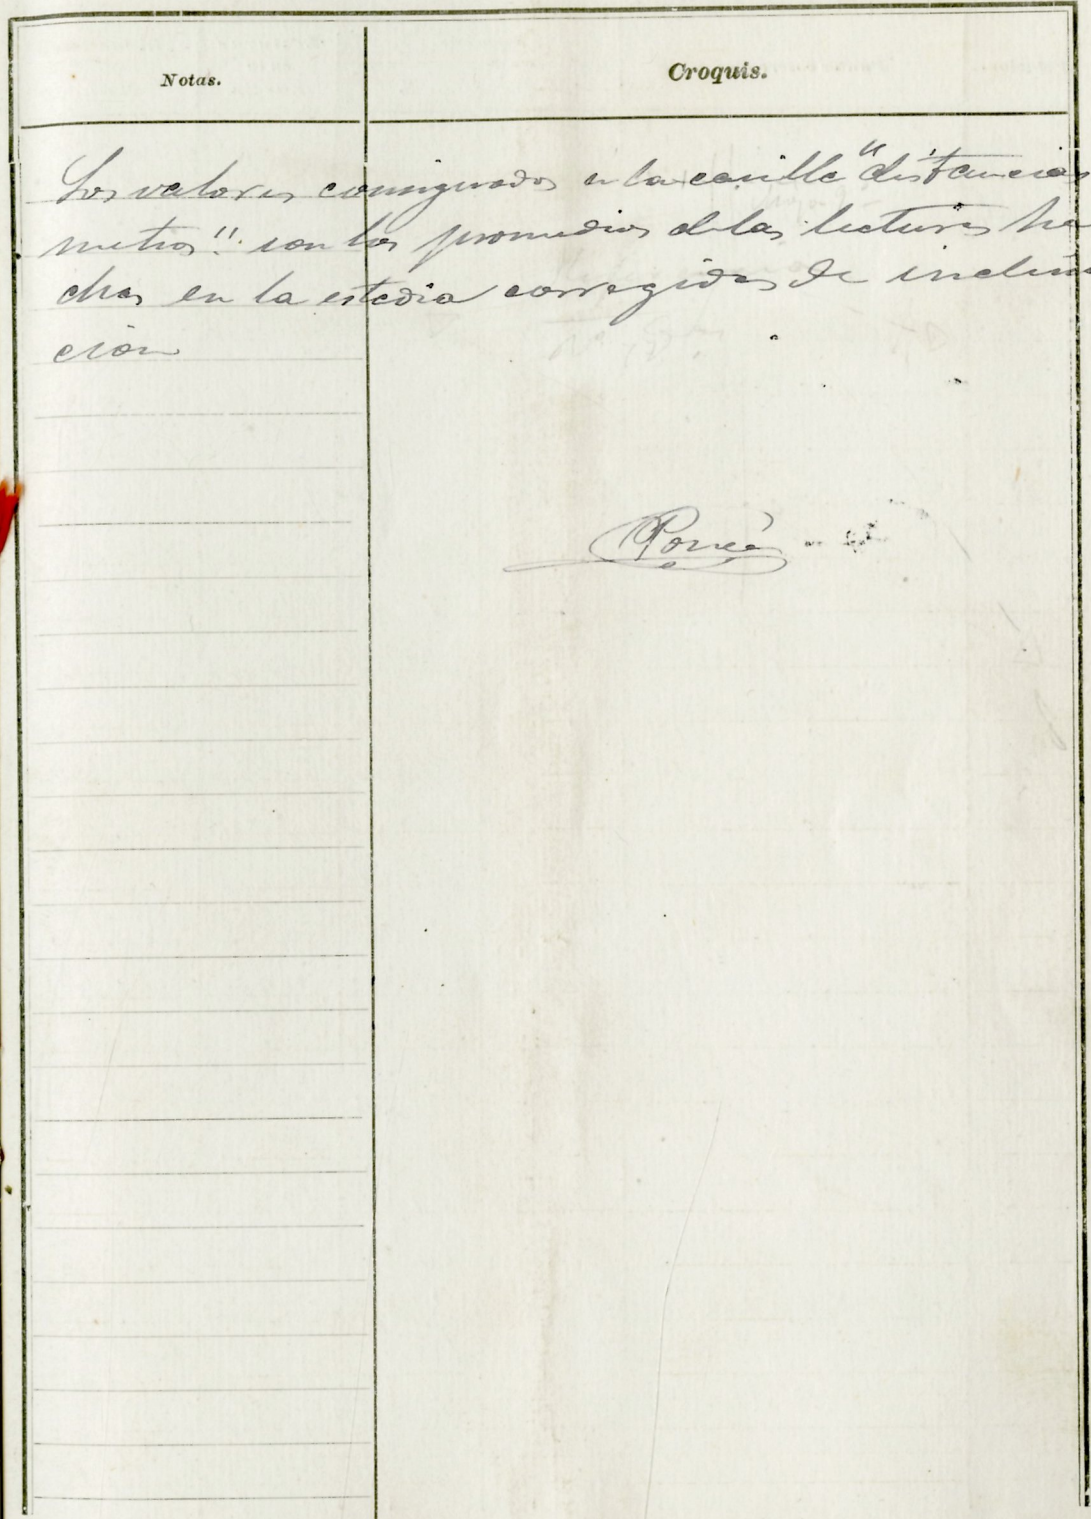 Notas.
Croquis.
Los valores consignados en la casilla "distancias
metros" son los promedios de las lecturas he
chas en la estadia corregidas de inclina
cion